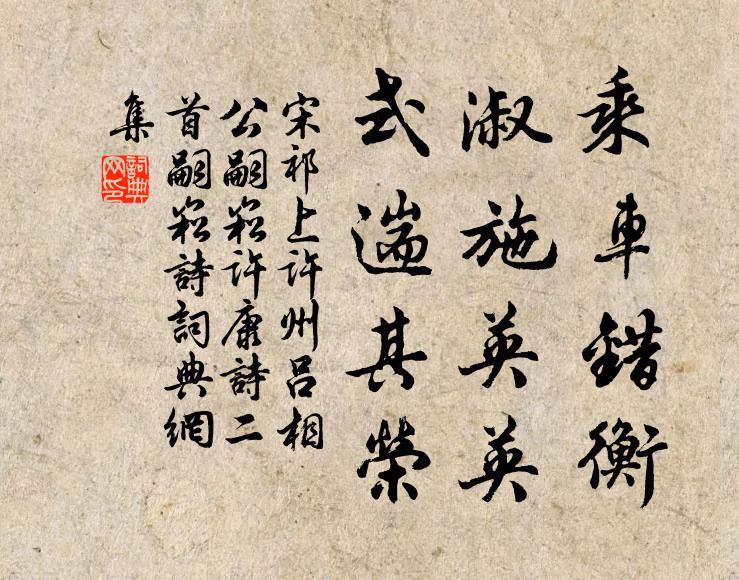 乘車錯衡
淑施英英
式遄其榮
宋祁上許州呂相
公嗣崧許康詩二
首嗣崧詩詞典網
集
詞典网印